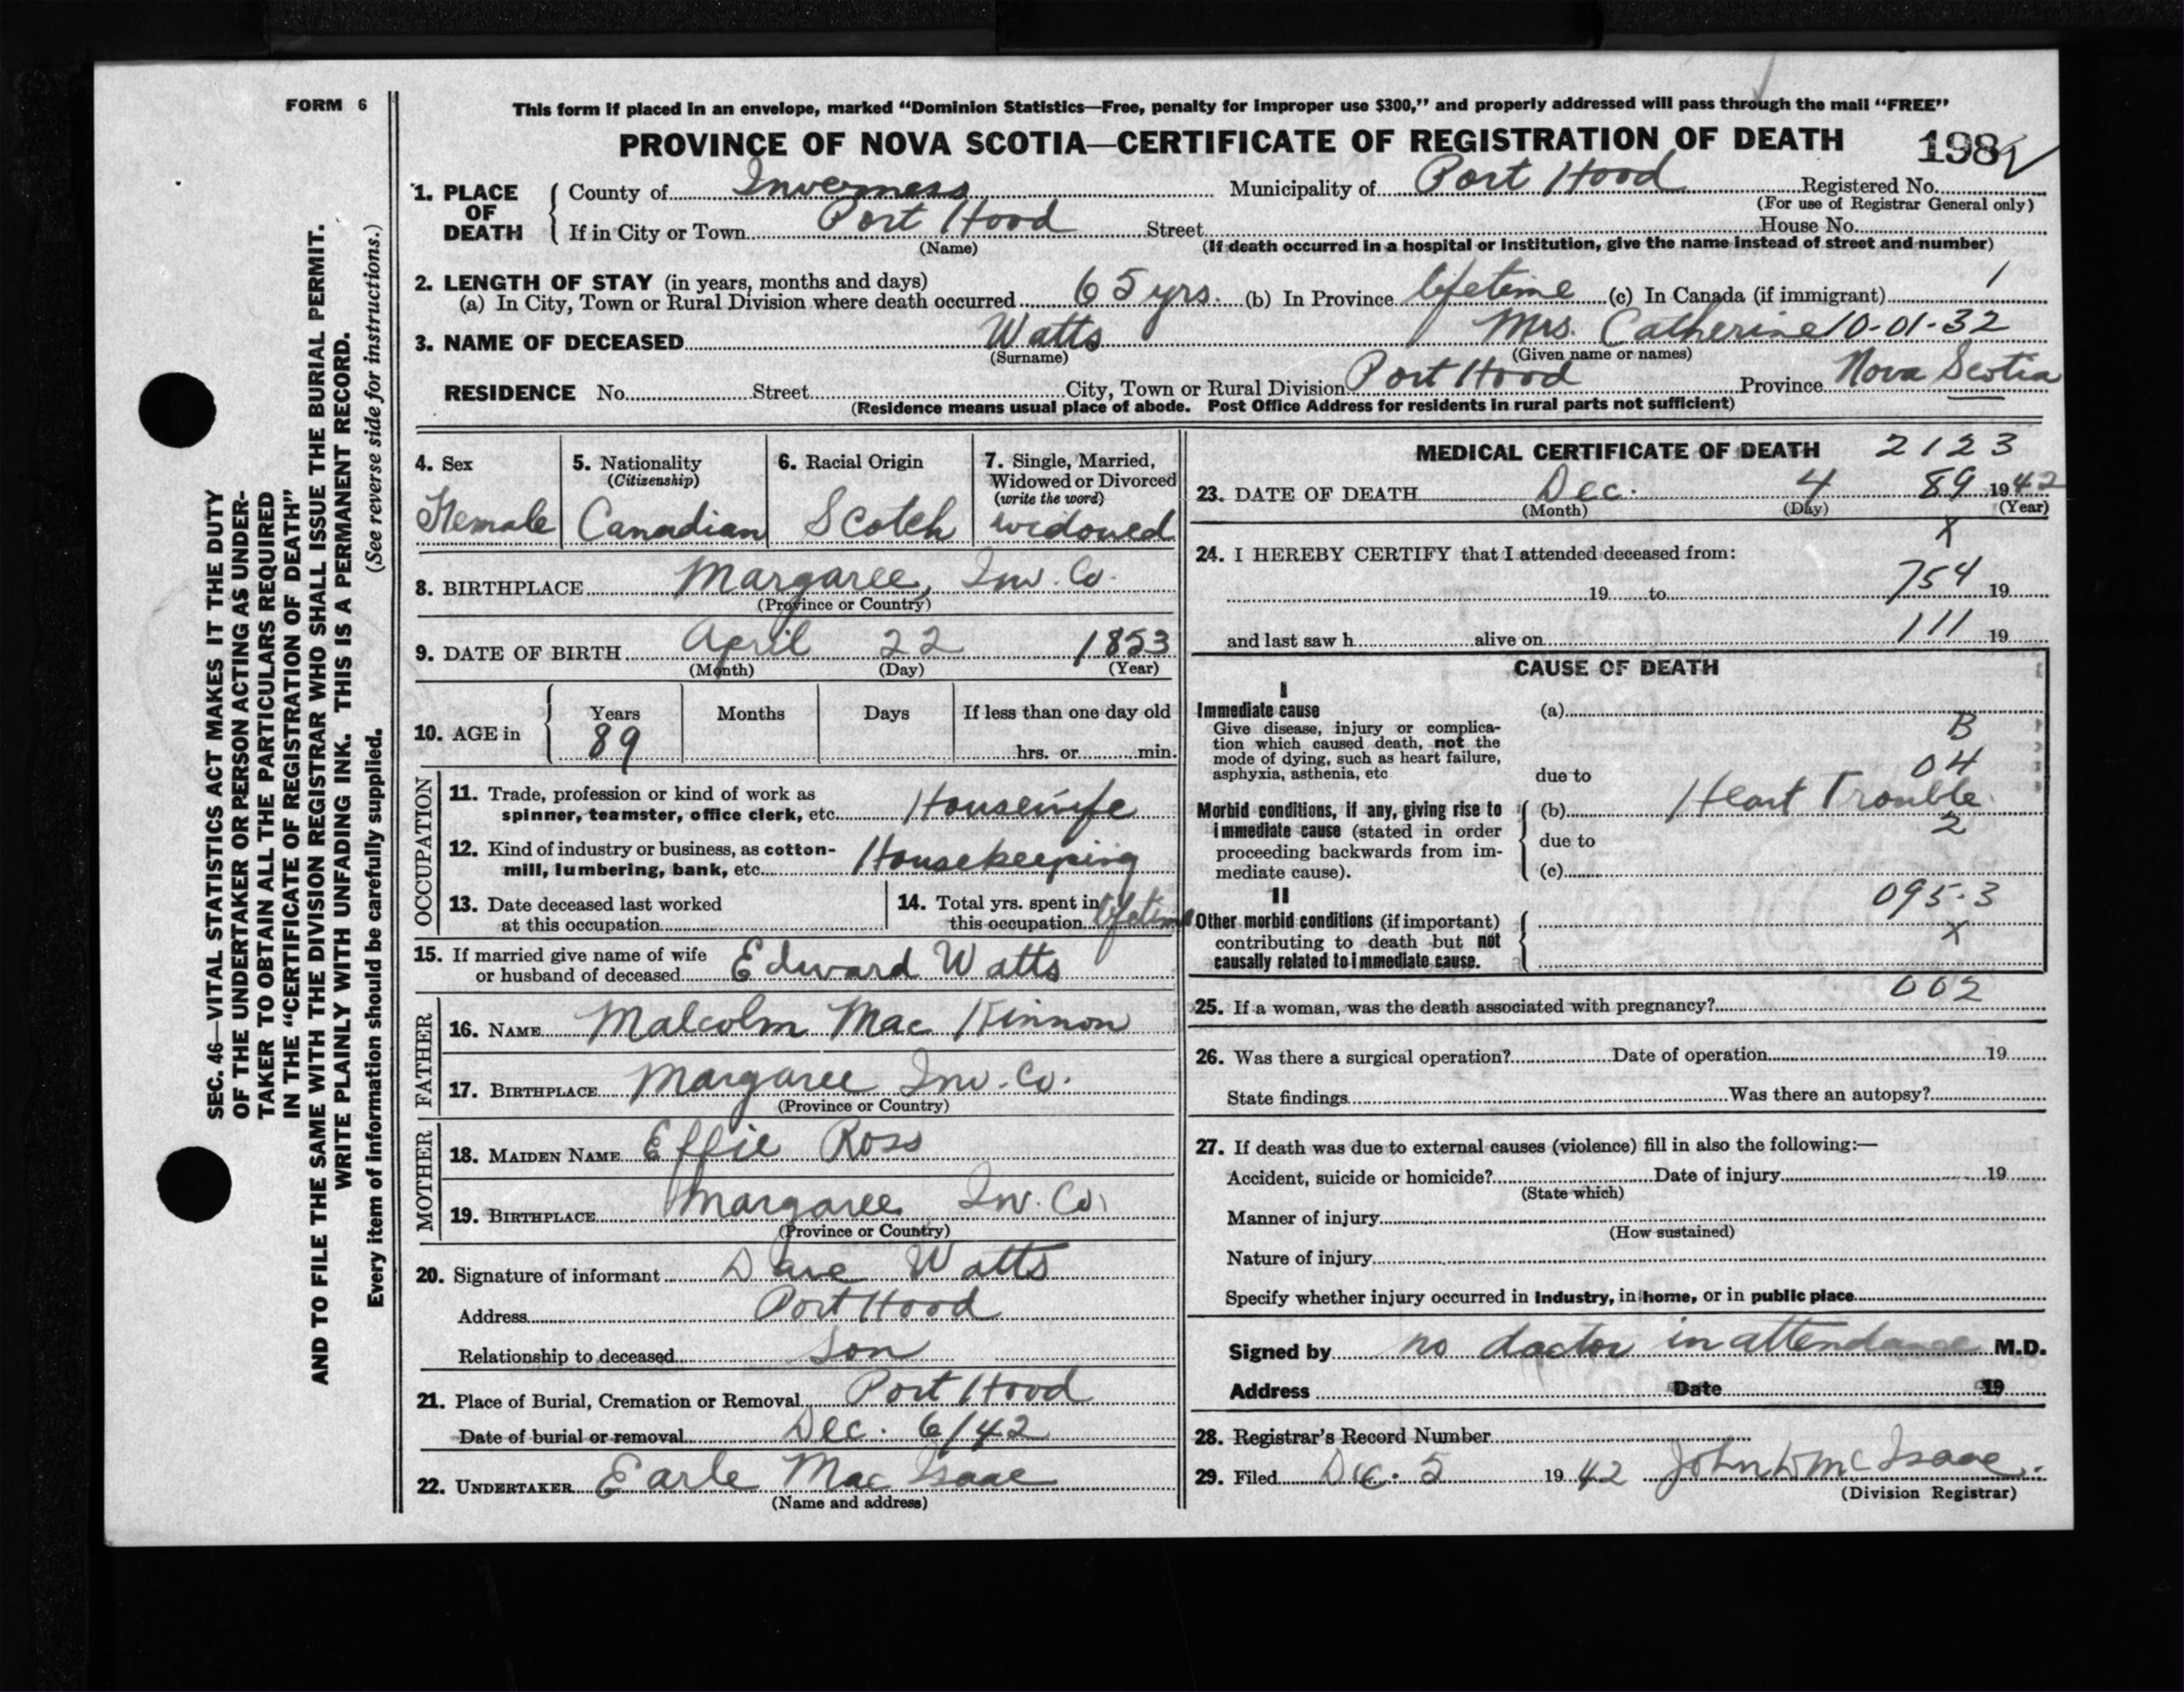 FORM 6
This form if placed in an envelope, marked “Dominion Statistics—Free, penalty for improper use $300,” and properly addressed will pass through the mail “FREE”
PROVINCE OF NOVA SCOTIA—CERTIFICATE OF REGISTRATION OF DEATH 198
1. PLACE OF DEATH County of Inverness Municipality of Port Hood Registered No.
(For use of Registrar General only)
If in City or Town Port Hood Street House No.
(Name) (If death occurred in a hospital or institution, give the name instead of street and number)
2. LENGTH OF STAY (in years, months and days)
(a) In City, Town or Rural Division where death occurred 65 yrs. (b) In Province lifetime (c) In Canada (if immigrant) 1
3. NAME OF DECEASED Watts Mrs. Catherine 10-01-32
(Surname) (Given name or names)
RESIDENCE No. Street City, Town or Rural Division Port Hood Province Nova Scotia
(Residence means usual place of abode. Post Office Address for residents in rural parts not sufficient)
4. Sex
Female
5. Nationality
(Citizenship)
Canadian
6. Racial Origin
Scotch
7. Single, Married,
Widowed or Divorced
(write the word)
widowed
8. BIRTHPLACE Margaree, Inv. Co.
(Province or Country)
9. DATE OF BIRTH April 22 1853
(Month) (Day) (Year)
10. AGE in Years Months Days If less than one day old
89 hrs. or min.
OCCUPATION
11. Trade, profession or kind of work as
spinner, teamster, office clerk, etc. Housewife
12. Kind of industry or business, as cotton-
mill, lumbering, bank, etc. Housekeeping
13. Date deceased last worked
at this occupation
14. Total yrs. spent in
this occupation lifetime
15. If married give name of wife
or husband of deceased Edward Watts
FATHER
16. NAME Malcolm Mac Kinnon
17. BIRTHPLACE Margaree Inv. Co.
(Province or Country)
MOTHER
18. MAIDEN NAME Effie Ross
19. BIRTHPLACE Margaree Inv. Co.
(Province or Country)
20. Signature of informant Dave Watts
Address Port Hood
Relationship to deceased Son
21. Place of Burial, Cremation or Removal Port Hood
Date of burial or removal Dec. 6/42
22. UNDERTAKER Earle Mac Isaac
(Name and address)
MEDICAL CERTIFICATE OF DEATH 2123
23. DATE OF DEATH Dec. 4 89 1942
(Month) (Day) (Year)
X
24. I HEREBY CERTIFY that I attended deceased from:
19 to 754 19
and last saw h alive on 111 19
CAUSE OF DEATH
I
Immediate cause (a)
Give disease, injury or complica-
tion which caused death, not the
mode of dying, such as heart failure,
asphyxia, asthenia, etc
B
04
due to
Morbid conditions, if any, giving rise to
immediate cause (stated in order
proceeding backwards from im-
mediate cause).
(b) Heart Trouble
2
due to
(c)
II
095.3
Other morbid conditions (if important)
contributing to death but not
causally related to immediate cause.
X
002
25. If a woman, was the death associated with pregnancy?
26. Was there a surgical operation? Date of operation 19
State findings Was there an autopsy?
27. If death was due to external causes (violence) fill in also the following:—
Accident, suicide or homicide? Date of injury 19
(State which)
Manner of injury
(How sustained)
Nature of injury
Specify whether injury occurred in industry, in home, or in public place
Signed by no doctor in attendance M.D.
Address Date 19
28. Registrar's Record Number
29. Filed Dec. 5 1942 John D McIsaac.
(Division Registrar)
SEC. 46—VITAL STATISTICS ACT MAKES IT THE DUTY
OF THE UNDERTAKER OR PERSON ACTING AS UNDER-
TAKER TO OBTAIN ALL THE PARTICULARS REQUIRED
IN THE “CERTIFICATE OF REGISTRATION OF DEATH”
AND TO FILE THE SAME WITH THE DIVISION REGISTRAR WHO SHALL ISSUE THE BURIAL PERMIT.
WRITE PLAINLY WITH UNFADING INK. THIS IS A PERMANENT RECORD.
Every item of information should be carefully supplied. (See reverse side for instructions.)